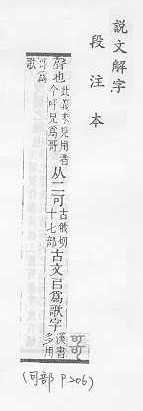 說文解字
段注本
聲也此義未見用者今呼兄爲哥从二可古俄切十七部古文㠯爲歌字漢書多用
哥爲歌
(可部 P206)